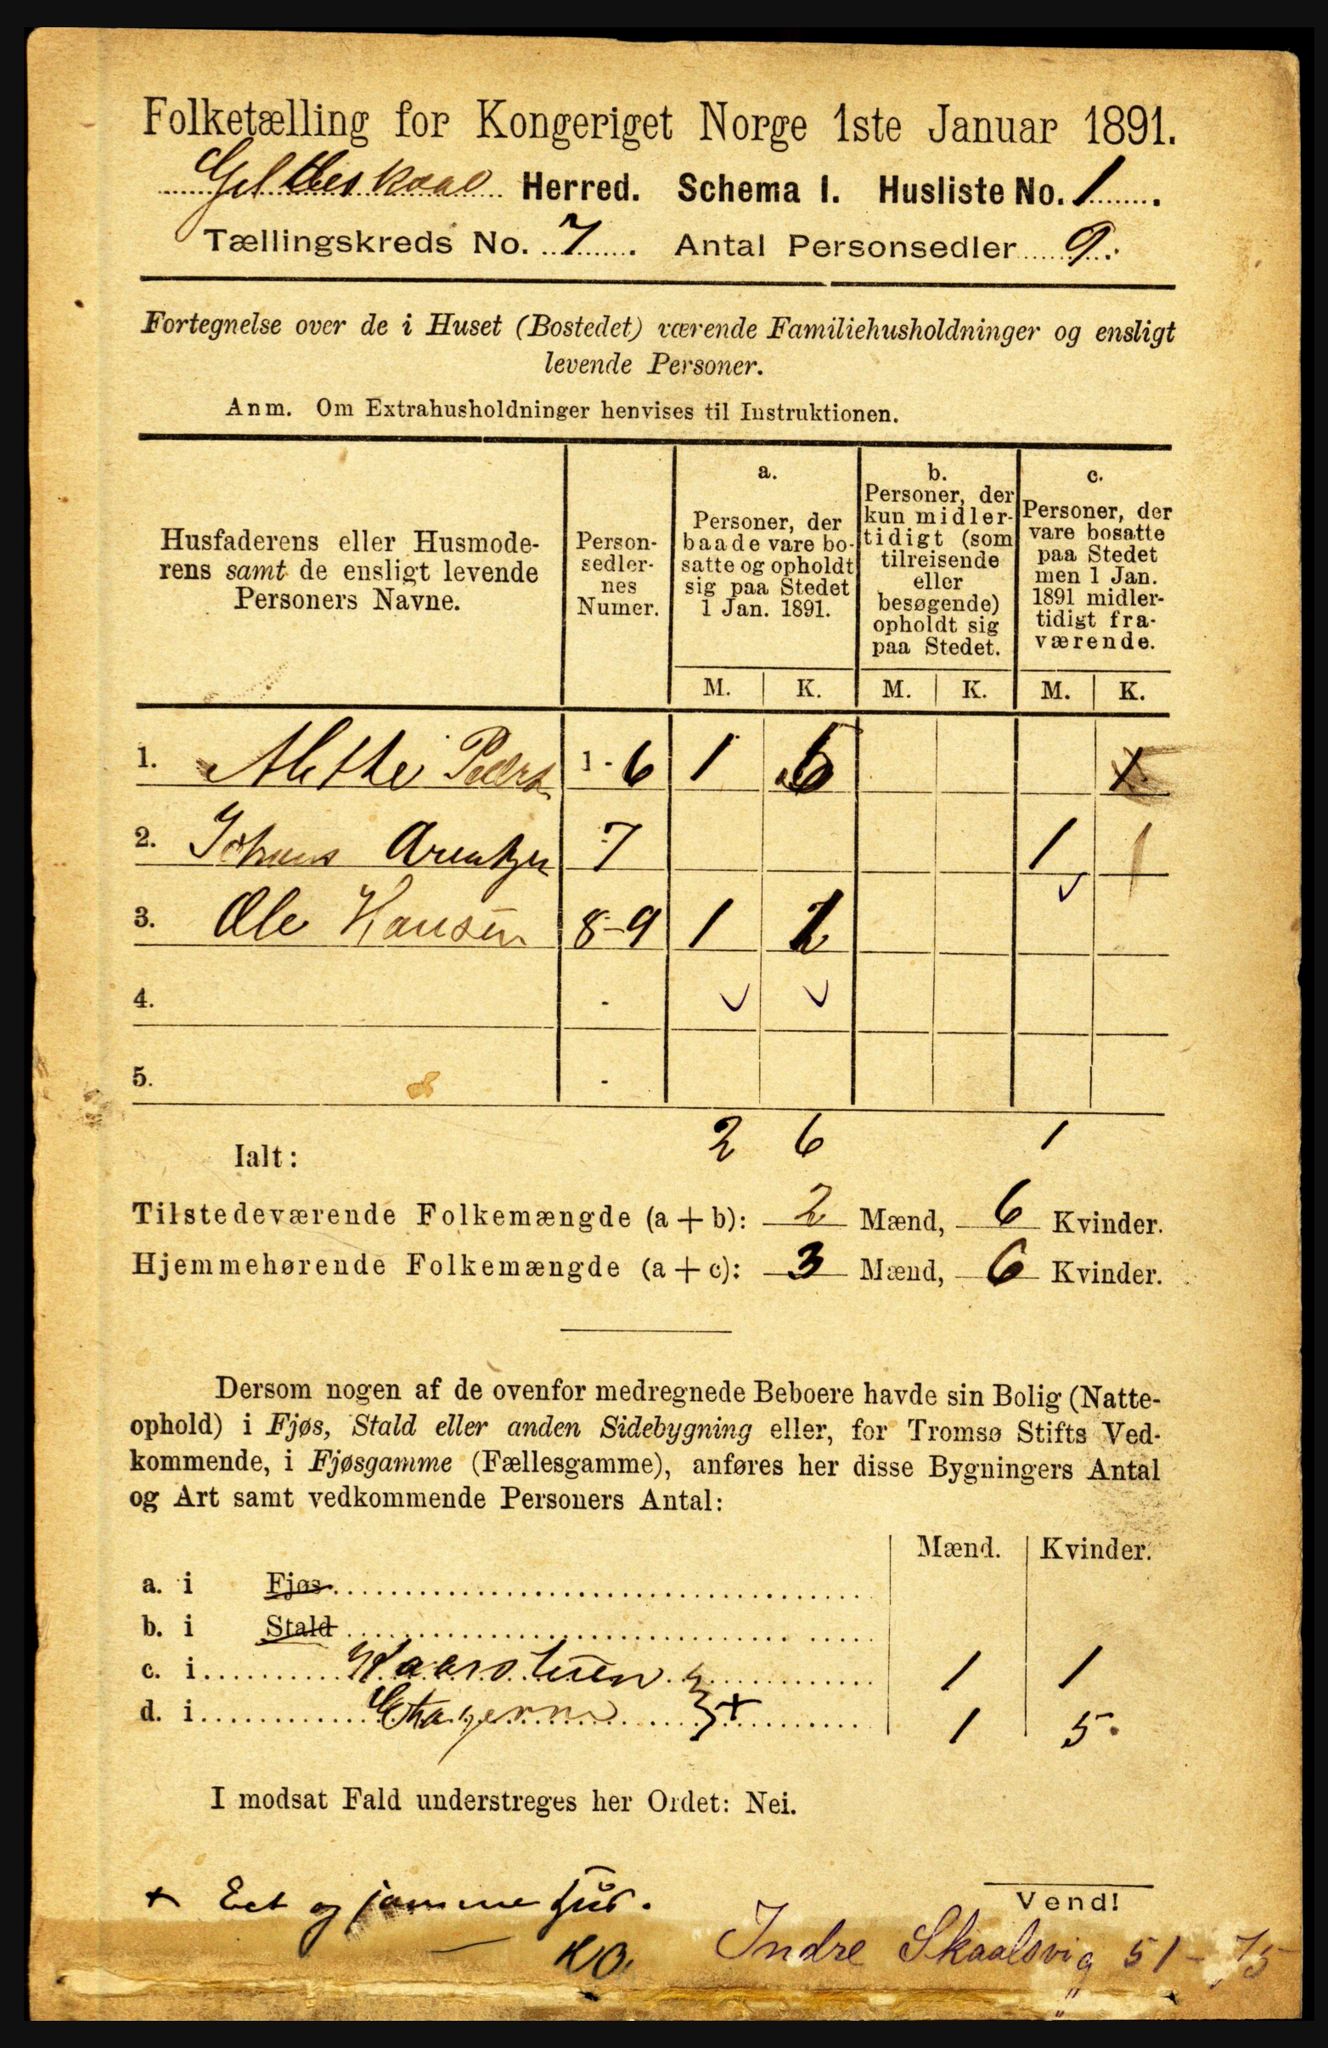 Folketælling for Kongeriget Norge 1ste Januar 1891.
Gildeskaal Herred. Schema I. Husliste No. 1.
Tællingskreds No. 7. Antal Personsedler 9.
Fortegnelse over de i Huset (Bostedet) værende Familiehusholdninger og ensligt
levende Personer.
Anm. Om Extrahusholdninger henvises til Instruktionen.
Husfaderens eller Husmode-
rens samt de ensligt levende
Personers Navne.
Person-
sedler-
nes
Numer.
a.
Personer, der
baade vare bo-
satte og opholdt
sig paa Stedet
1 Jan. 1891.
b.
Personer, der
kun midler-
tidigt (som
tilreisende
eller
besøgende)
opholdt sig
paa Stedet.
c.
Personer, der
vare bosatte
paa Stedet
men 1 Jan.
1891 midler-
tidigt fra-
værende.
M. K. M. K. M. K.
1. Methe Peders 1 - 6 1 5
2. Johans 7 1 1
3. Ole Hansen 8-9 1 1
4. -
5. -
2 6 1
Ialt:
Tilstedeværende Folkemængde (a + b): 2 Mænd, 6 Kvinder.
Hjemmehørende Folkemængde (a + c): 3 Mænd, 6 Kvinder.
Dersom nogen af de ovenfor medregnede Beboere havde sin Bolig (Natte-
ophold) i Fjøs, Stald eller anden Sidebygning eller, for Tromsø Stifts Ved-
kommende, i Fjøsgamme (Fællesgamme), anføres her disse Bygningers Antal
og Art samt vedkommende Personers Antal:
Mænd. Kvinder.
a. i Fjøs
b. i Stald
c. i Kaarstuen 1 1
d. i + 1 5
I modsat Fald understreges her Ordet: Nei.
+ Eet og samme Hus.
Vend!
KO.
Indre Skaalsvig 51 - 75
"